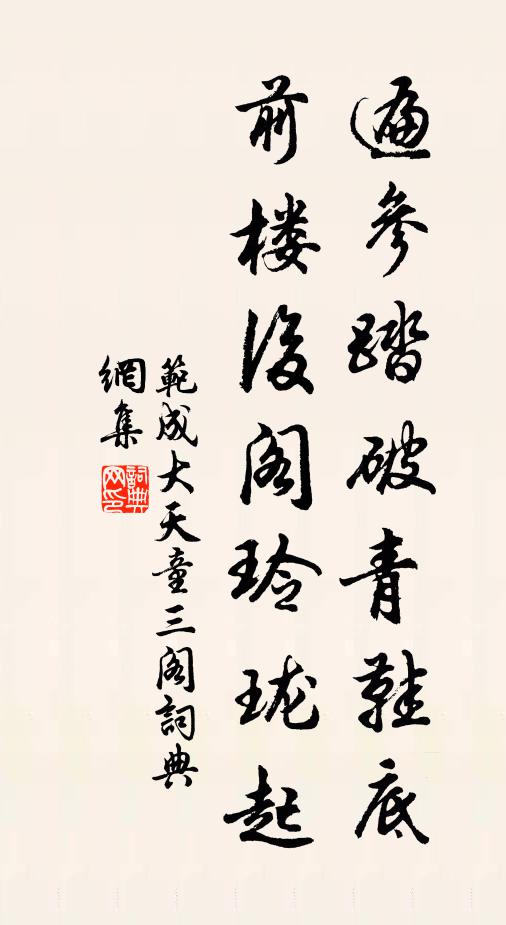 遍參踏破青鞋底
前楼後阁玲珑起
範成大天童三阁詞典
網集
詞典網印